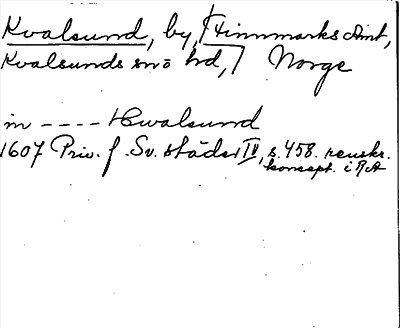 Kvalsund, by, [Finnmarks Amt,
Kvalsunds sn o hd,] Norge
in ---- Hwalsund
1607 Priv. f. Sv. städer IV, s. 458. renskr.
koncept. i RA